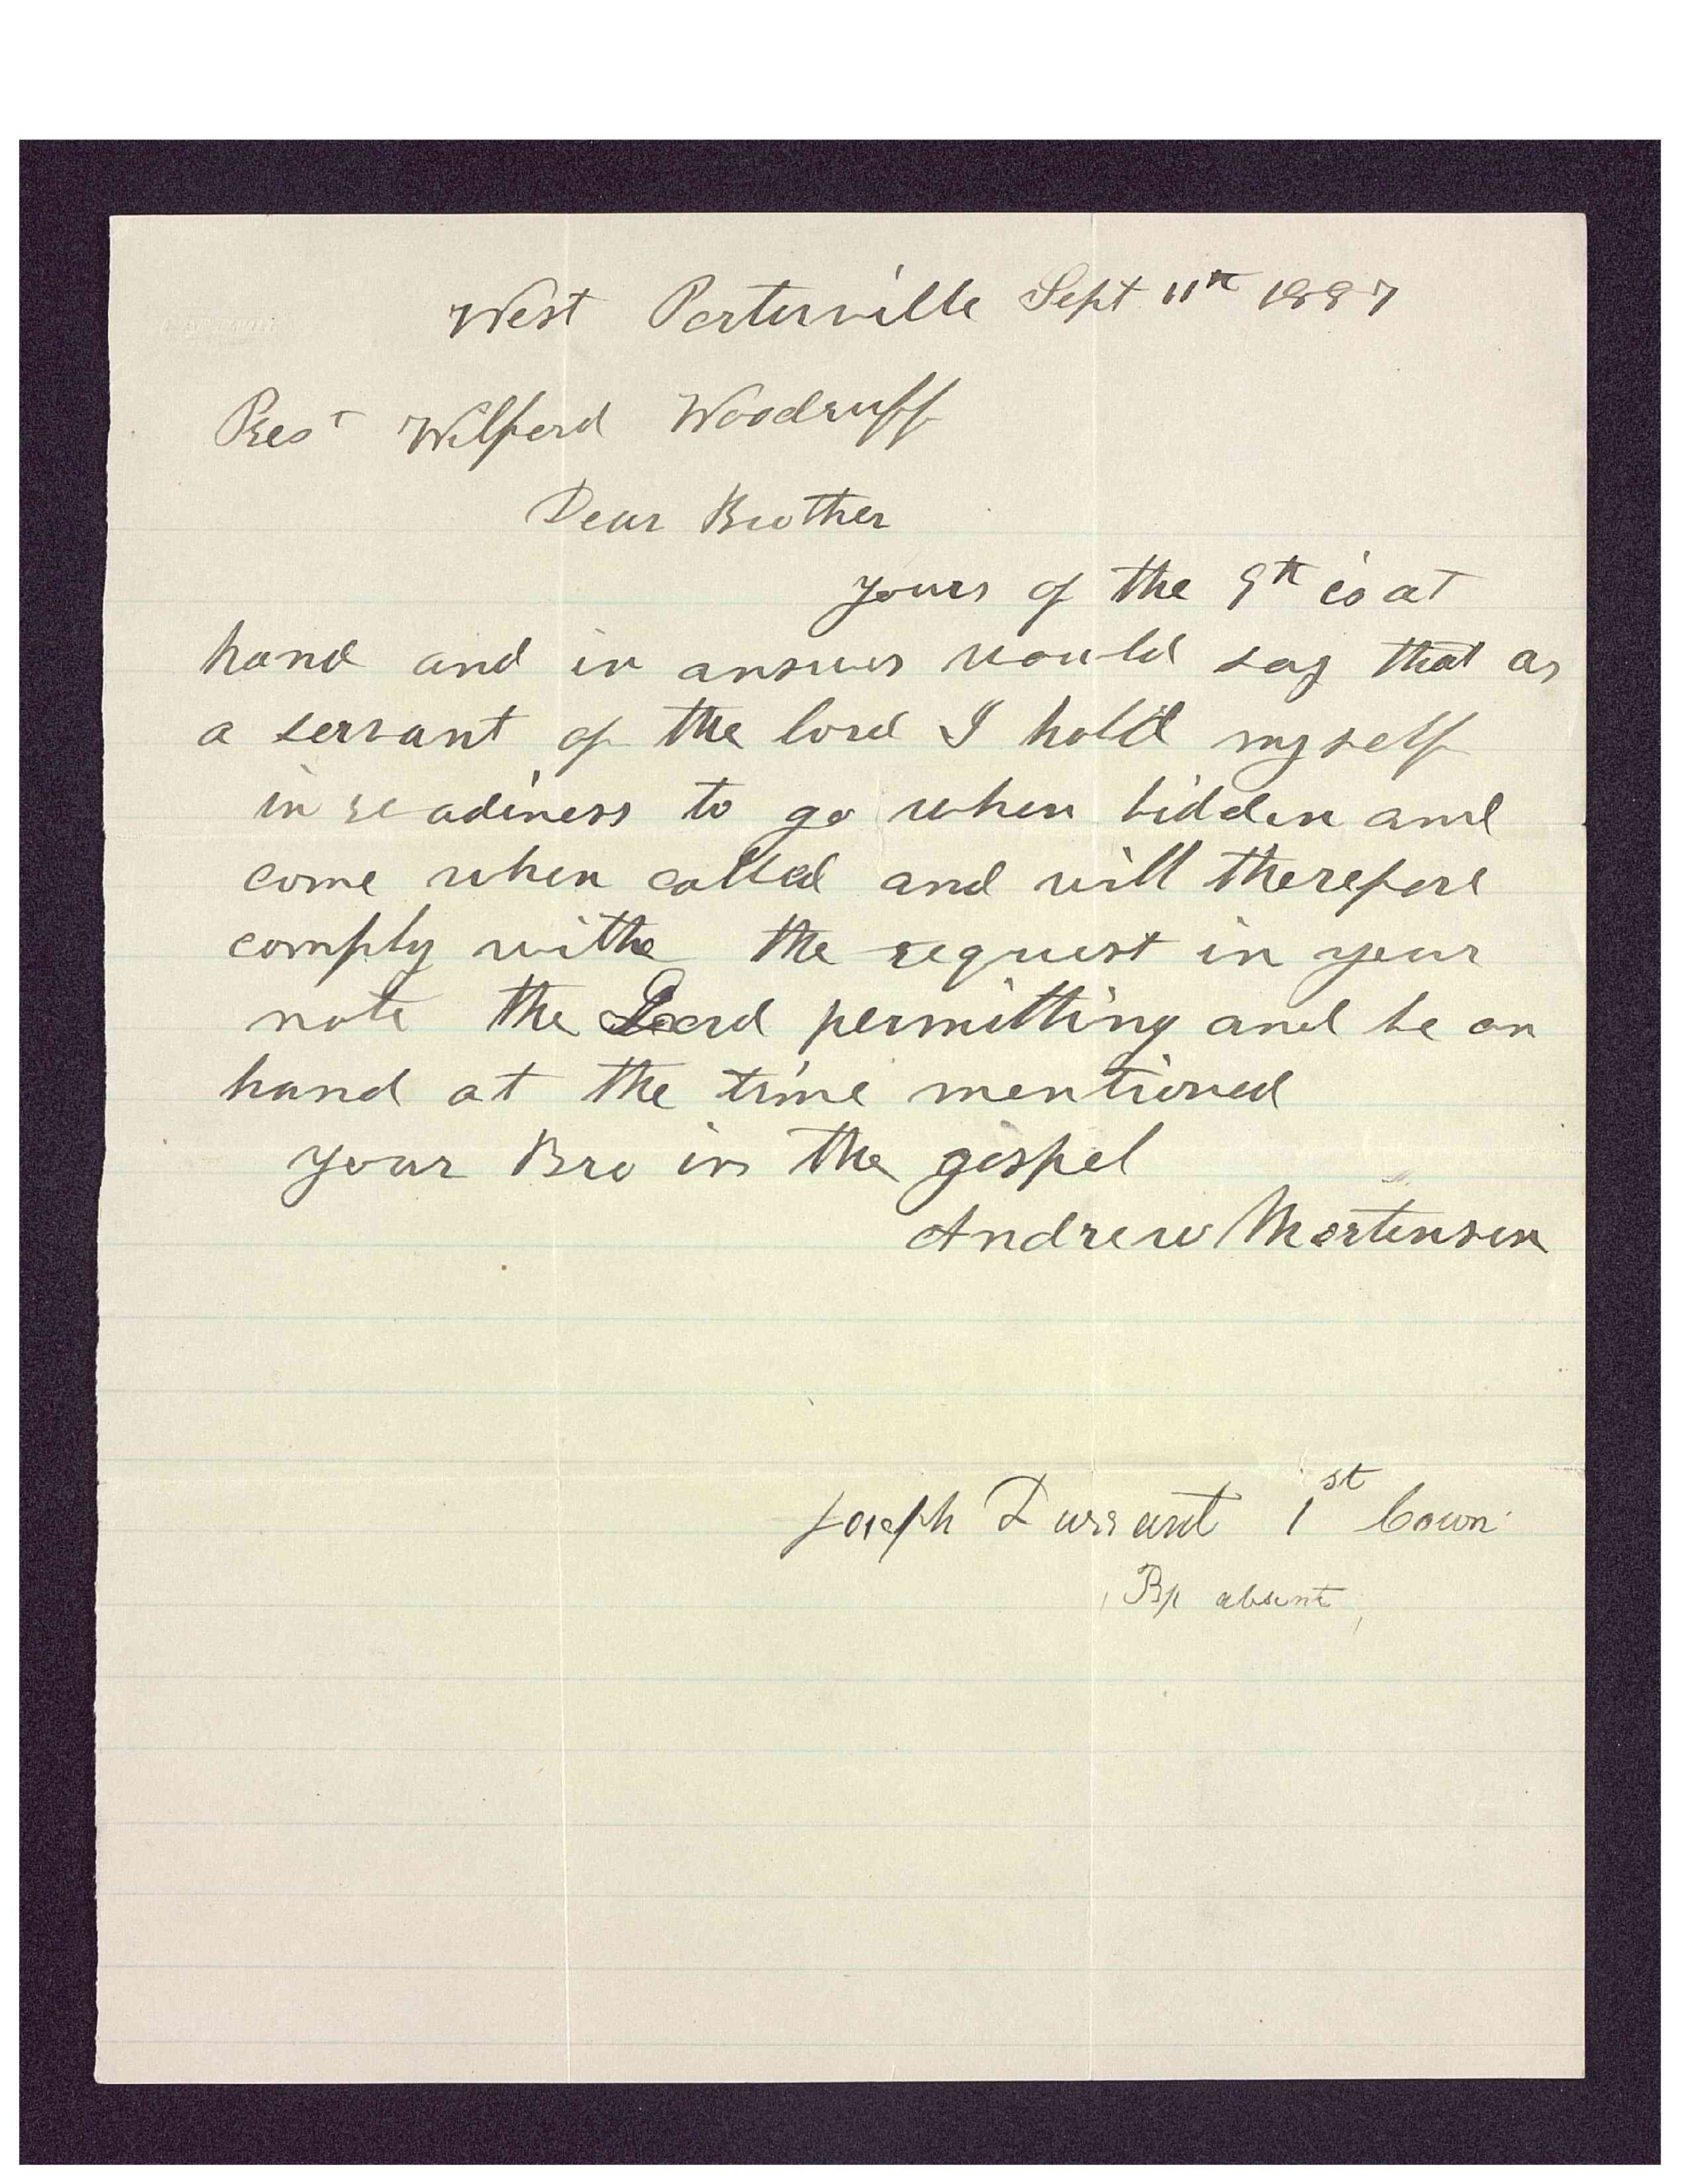 West Porterville Sept 11th 1887
Prest Wilford Woodruff
Dear Brother
yours of the 9th is at
hand and in answer would say that as
a servant of the lord I hold myself
in readiness to go when bidden and
come when called and will therefore
comply withe the request in your
note the Lord permitting and be on
hand at the time mentioned
your Bro in the gospel
Andrew Mortensen
Joseph Durrant 1st Coun
Bp absent